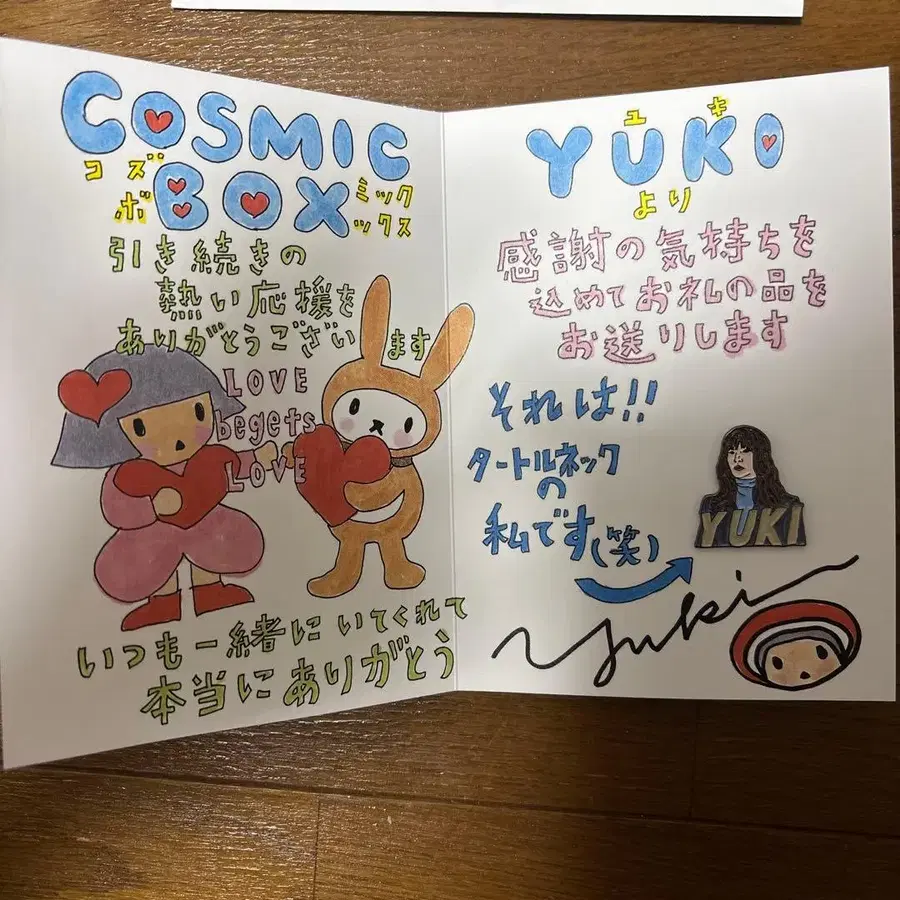 COSMIC
コズミック
BOX
ボックス
引き続きの
熱い応援を
ありがとうございます
LOVE
begets
LOVE
いつも一緒に いてくれて
本当に ありがとう
ユキ
YUKI
より
感謝の気持ちを
込めてお礼の品を
お送りします
それは!!
タートルネック
の
私です(笑)
YUKI
Yuki